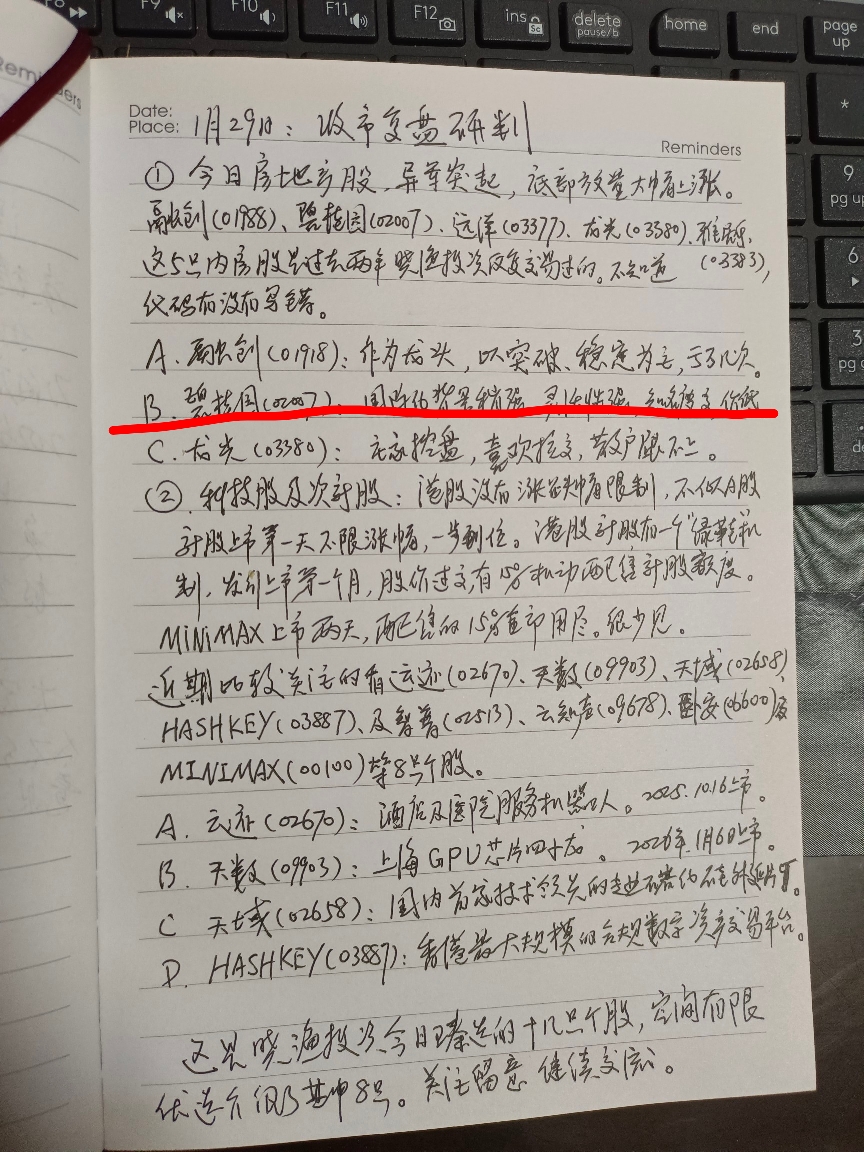 F9
F10
F11
F12
ins
Sc
delete
pause/b
home
end
page
up
*
9
pg up
6
3
pg
Date:
Place:
1月29日：收市复盘研判
Reminders
①今日房地产股，异军突起，底部放量大幅上涨。
融创(01988)、碧桂园(02007)、远洋(03377)、龙光(03380)、雅居乐
这5只内房股是过去两年晓渔投资反复交易过的。不知道 (03383)，
代码有没有写错。
A.融创(01918)：作为龙头，以突破、稳定为主，亏了几次。
B.碧桂园(02007)：国际化背景稍强
C.龙光(03380)：庄家控盘，喜欢拉高，散户跟不上。
②科技股及次新股：港股没有涨跌幅有限制，不似A股
新股上市第一天不限涨幅，一步到位。港股新股有一个“绿鞋”机
制，发行上市第一个月，股价过高，有15%机动配售新股额度。
MINIMAX上市两天，配售的15%宣布用尽。很少见。
近期比较关注的有云迹(02670)、天数(09903)、天域(02658)、
HASHKEY(03887)、及智普(02513)、云知声(09678)、卧安(06600)及
MINIMAX(00100)等8只个股。
A.云迹(02670)：酒店及医院服务机器人。2025.10.16上市。
B.天数(09903)：上海GPU芯片四小龙。2026年1月6日上市。
C 天域(02658)：国内首家技术领先的专业碳化硅外延片
D.HASHKEY(03887)：香港最大规模的合规数字资产交易平台。
这是晓渔投资今日臻选的十几只个股，空间有限
优选介绍了其中8只。关注留意 继续交流。